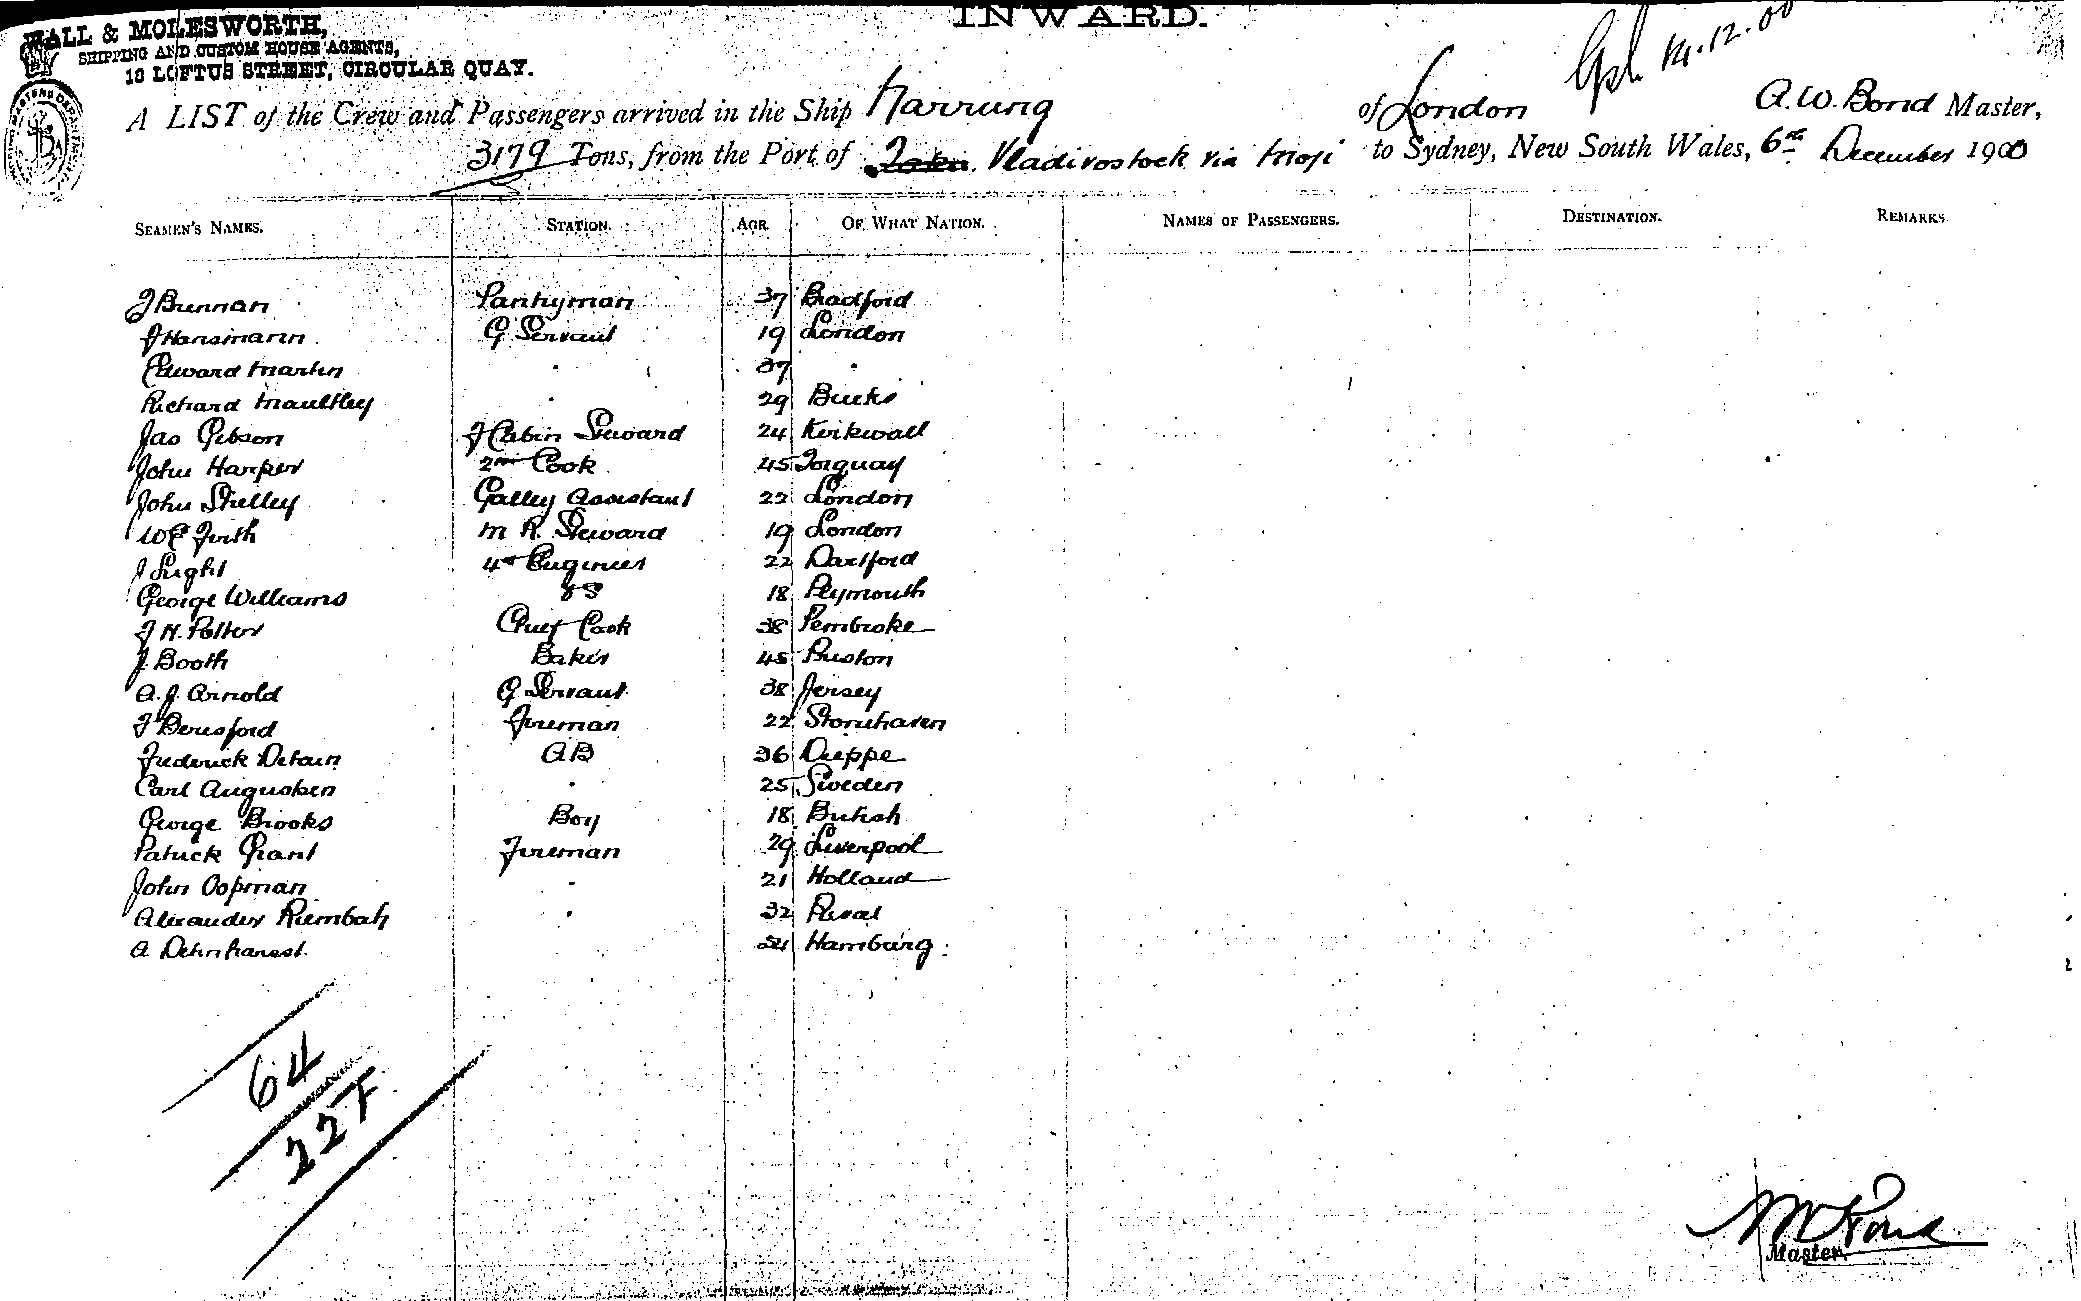 INWARD.
HALL & MOLESWORTH,
SHIPPING AND CUSTOM HOUSE AGENTS,
18 LOFTUS STREET, CIRCULAR QUAY.
14.12.00
A LIST of the Crew and Passengers arrived in the Ship Narrung of London A.W. Bond Master,
3179 Tons, from the Port of Vladivostock via Moji to Sydney, New South Wales, 6th December 1900
SEAMEN'S NAMES. STATION. AGE. OF WHAT NATION. NAMES OF PASSENGERS. DESTINATION. REMARKS.
J Brennan Pantryman 37 Bradford
J Hansmann G Servant 19 London
Edward Martin " 37 "
Richard Maultley " 29 Bucks
Jas Gibson F Cabin Steward 24 Kirkwall
John Harper 2nd Cook 45 Torquay
John Shelley Galley Assistant 22 London
W E Firth M R. Steward 19 London
J Light 4th Engineer 22 Dartford
George Williams 18 Plymouth
J H. Potter Chief Cook 38 Pembroke
J. Booth Baker 45 Preston
A. J. Arnold G Servant 38 Jersey
J Beresford Fireman 22 Stonehaven
Frederick Detain AB 36 Dieppe
Carl Augusten " 25 Sweden
George Brooks Boy 18 British
Patrick Grant Fireman 29 Liverpool
John Oopman " 21 Holland
Alexander Rumbah " 32 Reval
A Hamburg.
64
227
Master